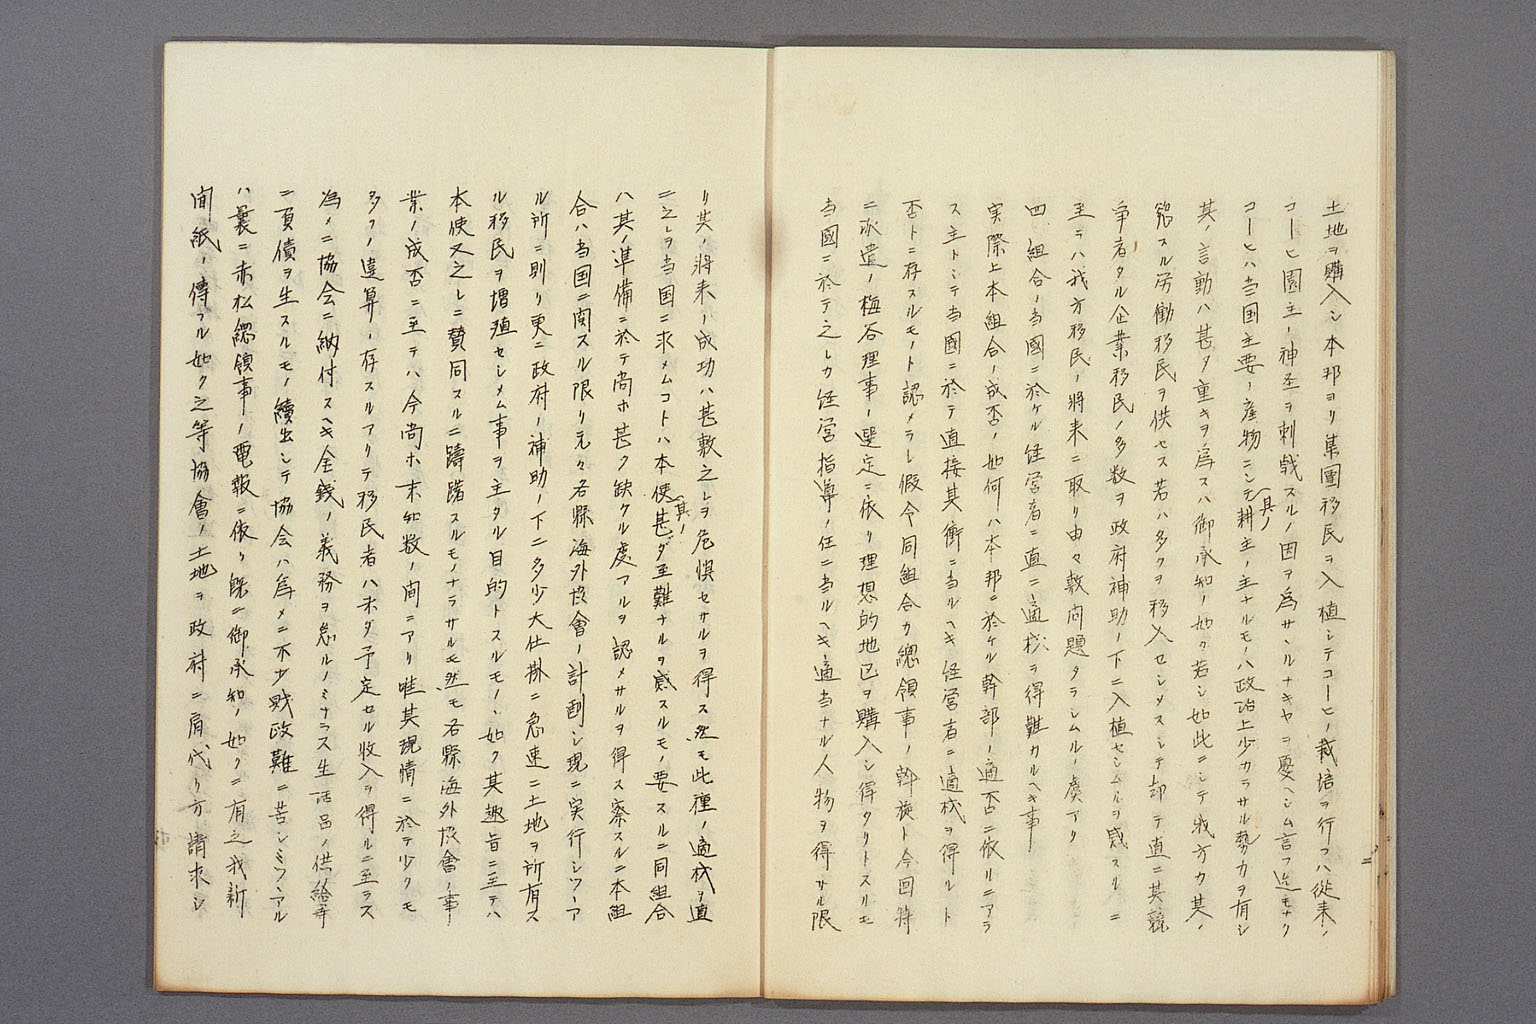 土地ヲ購入シ本邦ヨリ集團移民ヲ入植シテコーヒーノ栽培ヲ行フハ従来ノ
コーヒー園主ノ神圣ヲ刺戟スルノ因ヲ為サンルナキヤニ憂ヘシム言フ迄モナク
コーヒーハ当国主要ノ産物ニシテ其ノ耕主ノ主ナルモノハ政治上少カラサル勢力ヲ有シ
其ノ言動ハ甚タ重キヲ為スハ御承知ノ如ク若シ如此ニシテ我方カ其ノ
欲スル労働移民ヲ供セス若ハ多クヲ移入セシメスシテ却テ直ニ其競
争者タル企業移民ノ多数ヲ政府補助ノ下ニ入植セシムルヲ感スルニ
至ラハ我方移民ノ将来ニ取リ由々敷問題タラシムルノ虞アリ
四、組合ノ当國ニ於ケル経営者ニ直ニ適材ヲ得難カルヘキ事
実際上本組合ノ成否ノ如何ハ本邦ニ於ケル幹部ノ適否ニ依ルニアラ
ス主トシテ当國ニ於テ直接其衝ニ当ルヘキ経営者ニ適材ヲ得ルト
否トニ存スルモノト認メラレ假令同組合カ總領事ノ幹旋ト今回特
ニ派遣ノ梅谷理事ノ選定ニ依リ理想的地区ヲ購入シ得タリトスルモ
当國ニ於テ之レカ経営指導ノ任ニ当ルヘキ適当ナル人物ヲ得サル限
リ其ノ将来ノ成功ハ甚敷之レヲ危惧セサルヲ得ス然モ此種ノ適材ヲ直
ニ之レヲ当国ニ求メムコトハ本使其ノ甚ダ至難ナルヲ感スルモノ要スルニ同組合
ハ其ノ準備ニ於テ尚ホ甚ク缺クル處アルヲ認メサルヲ得ス察スルニ本組
合ハ当国ニ関スル限リ元々各縣海外協會ノ計画シ現ニ実行シツヽア
ル所ニ則リ更ニ政府ノ補助ノ下ニ多少大仕掛ニ急速ニ土地ヲ所有ス
ル移民ヲ増殖セシメム事ヲ主タル目的トスルモノヽ如ク其趣旨ニ至テハ
本使又之レニ賛同スルニ躊躇スルモノナラサルモ然モ各縣海外協會ノ事
業ノ成否ニ至テハ今尚ホ未知数ノ間ニアリ唯其現情ニ於テ少クモ
多クノ違算ノ存スルアリテ移民者ハ未ダ予定セル収入ヲ得ルニ至ラス
為メニ協会ニ納付スヘキ金銭ノ義務ヲ怠ルノミナラス生活品ノ供給等
ニ負債ヲ生スルモノ續出シテ協会ハ為メニ不少財政難ニ苦シミツヽアル
ハ曩ニ赤松總領事ノ電報ニ依リ既ニ御承知ノ如クニ有之我新
聞紙ノ傳フル如ク之等協會ノ土地ヲ政府ニ肩代リ方請求シ